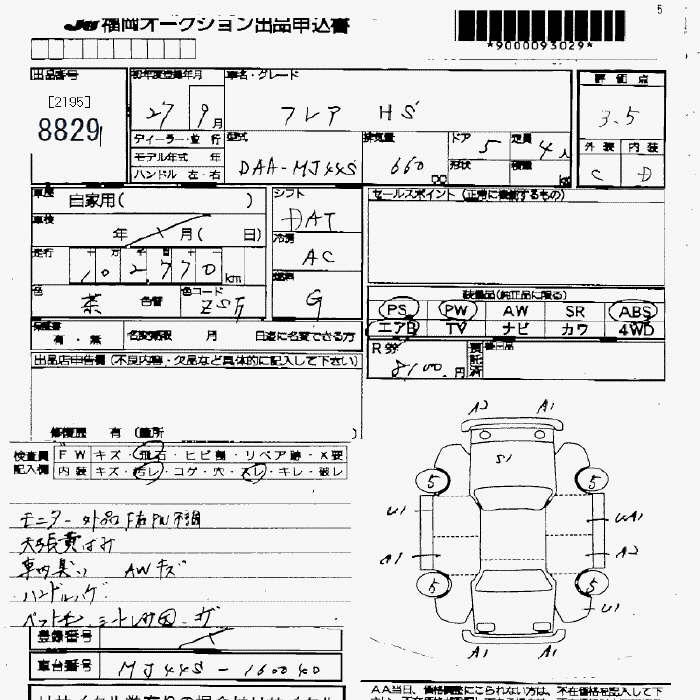 JU 福岡オークション出品申込書
5
*9000093029*
出品番号
[2195]
8829
初年度登録年月
27 9月
車名・グレード
フレア HS
評価点
3.5
外装 内装
C D
ディーラー・並行
モデル年式 年
ハンドル 左・右
型式
DAA-MJ44S
排気量
660 cc
ドア 5
形状
定員 4人
積載 kg
車歴 自家用( )
車検 年 月( 日)
走行 十万千百十一
102,770 km
色 茶 色替
色コード ZSF
シフト
DAT
冷房
AC
燃料
G
セールスポイント (正常に機動するもの)
装備品(純正品に限る)
PS PW AW SR ABS
エアB TV ナビ カワ 4WD
保証書 有・無
名変期限 月 日迄に名変できる方
R券 8100.円
預託済
後日品
出品店申告欄(不良内容・欠品など具体的に記入して下さい)
修復歴 有 (箇所 )
検査員記入欄
FW キズ・飛石・ヒビ割・リペア跡・X要
内装 キズ・汚レ・コゲ・穴・スレ・キレ・破レ
モニター外品 F右PW不調
天張黄ばみ
車内臭い AWキズ
ハンドルハゲ
A2 A1
S1
5 5
U1 UA1
A1 A2
5 5
U1
A1 A1
登録番号
車台番号 MJ44S-160040
リサイクル
AA当日、価格調整にこられない方は、不在価格を記入して下